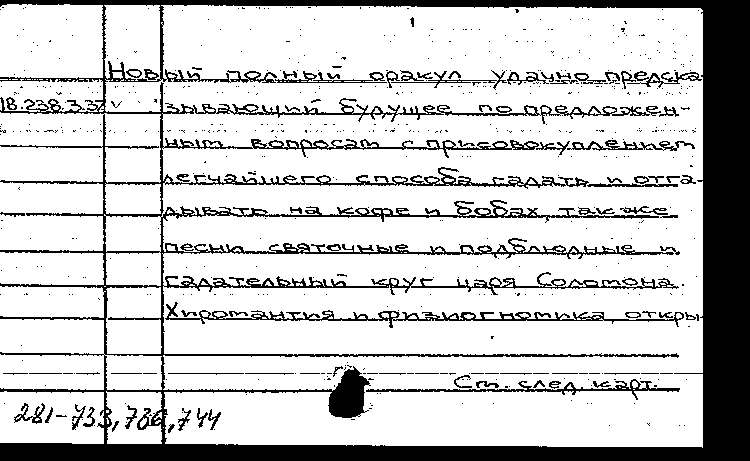 Новый полный оракул, удачно предска-
18.238.3.37 v зывающий будущее по предложен-
ным вопросам с присовокуплением
легчайшего способа гадать и отга-
дывать на кофе и бобах, также
песни святочные и подблюдные и
гадательный круг царя Соломона.
Хиромантия и физиогномика, откры-
См. след. карт.
281-733,736,744